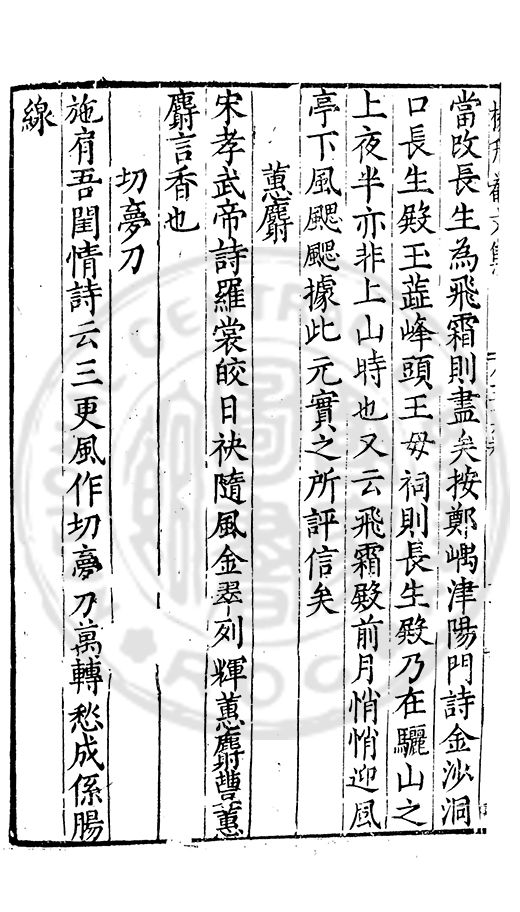 當改長生為飛霜則盡矣按鄭嵎津陽門詩金沙洞
口長生殿玉蘂峰頭王母祠則長生殿乃在驪山之
上夜半亦非上山時也又云飛霜殿前月悄悄迎風
亭下風颸颸據此元實之所評信矣
蕙麝
宋孝武帝詩羅裳皎日袂隨風金翠列輝蕙麝豐蕙
麝言香也
切夢刀
施肩吾閨情詩云三更風作切夢刀萬轉愁成係腸
線